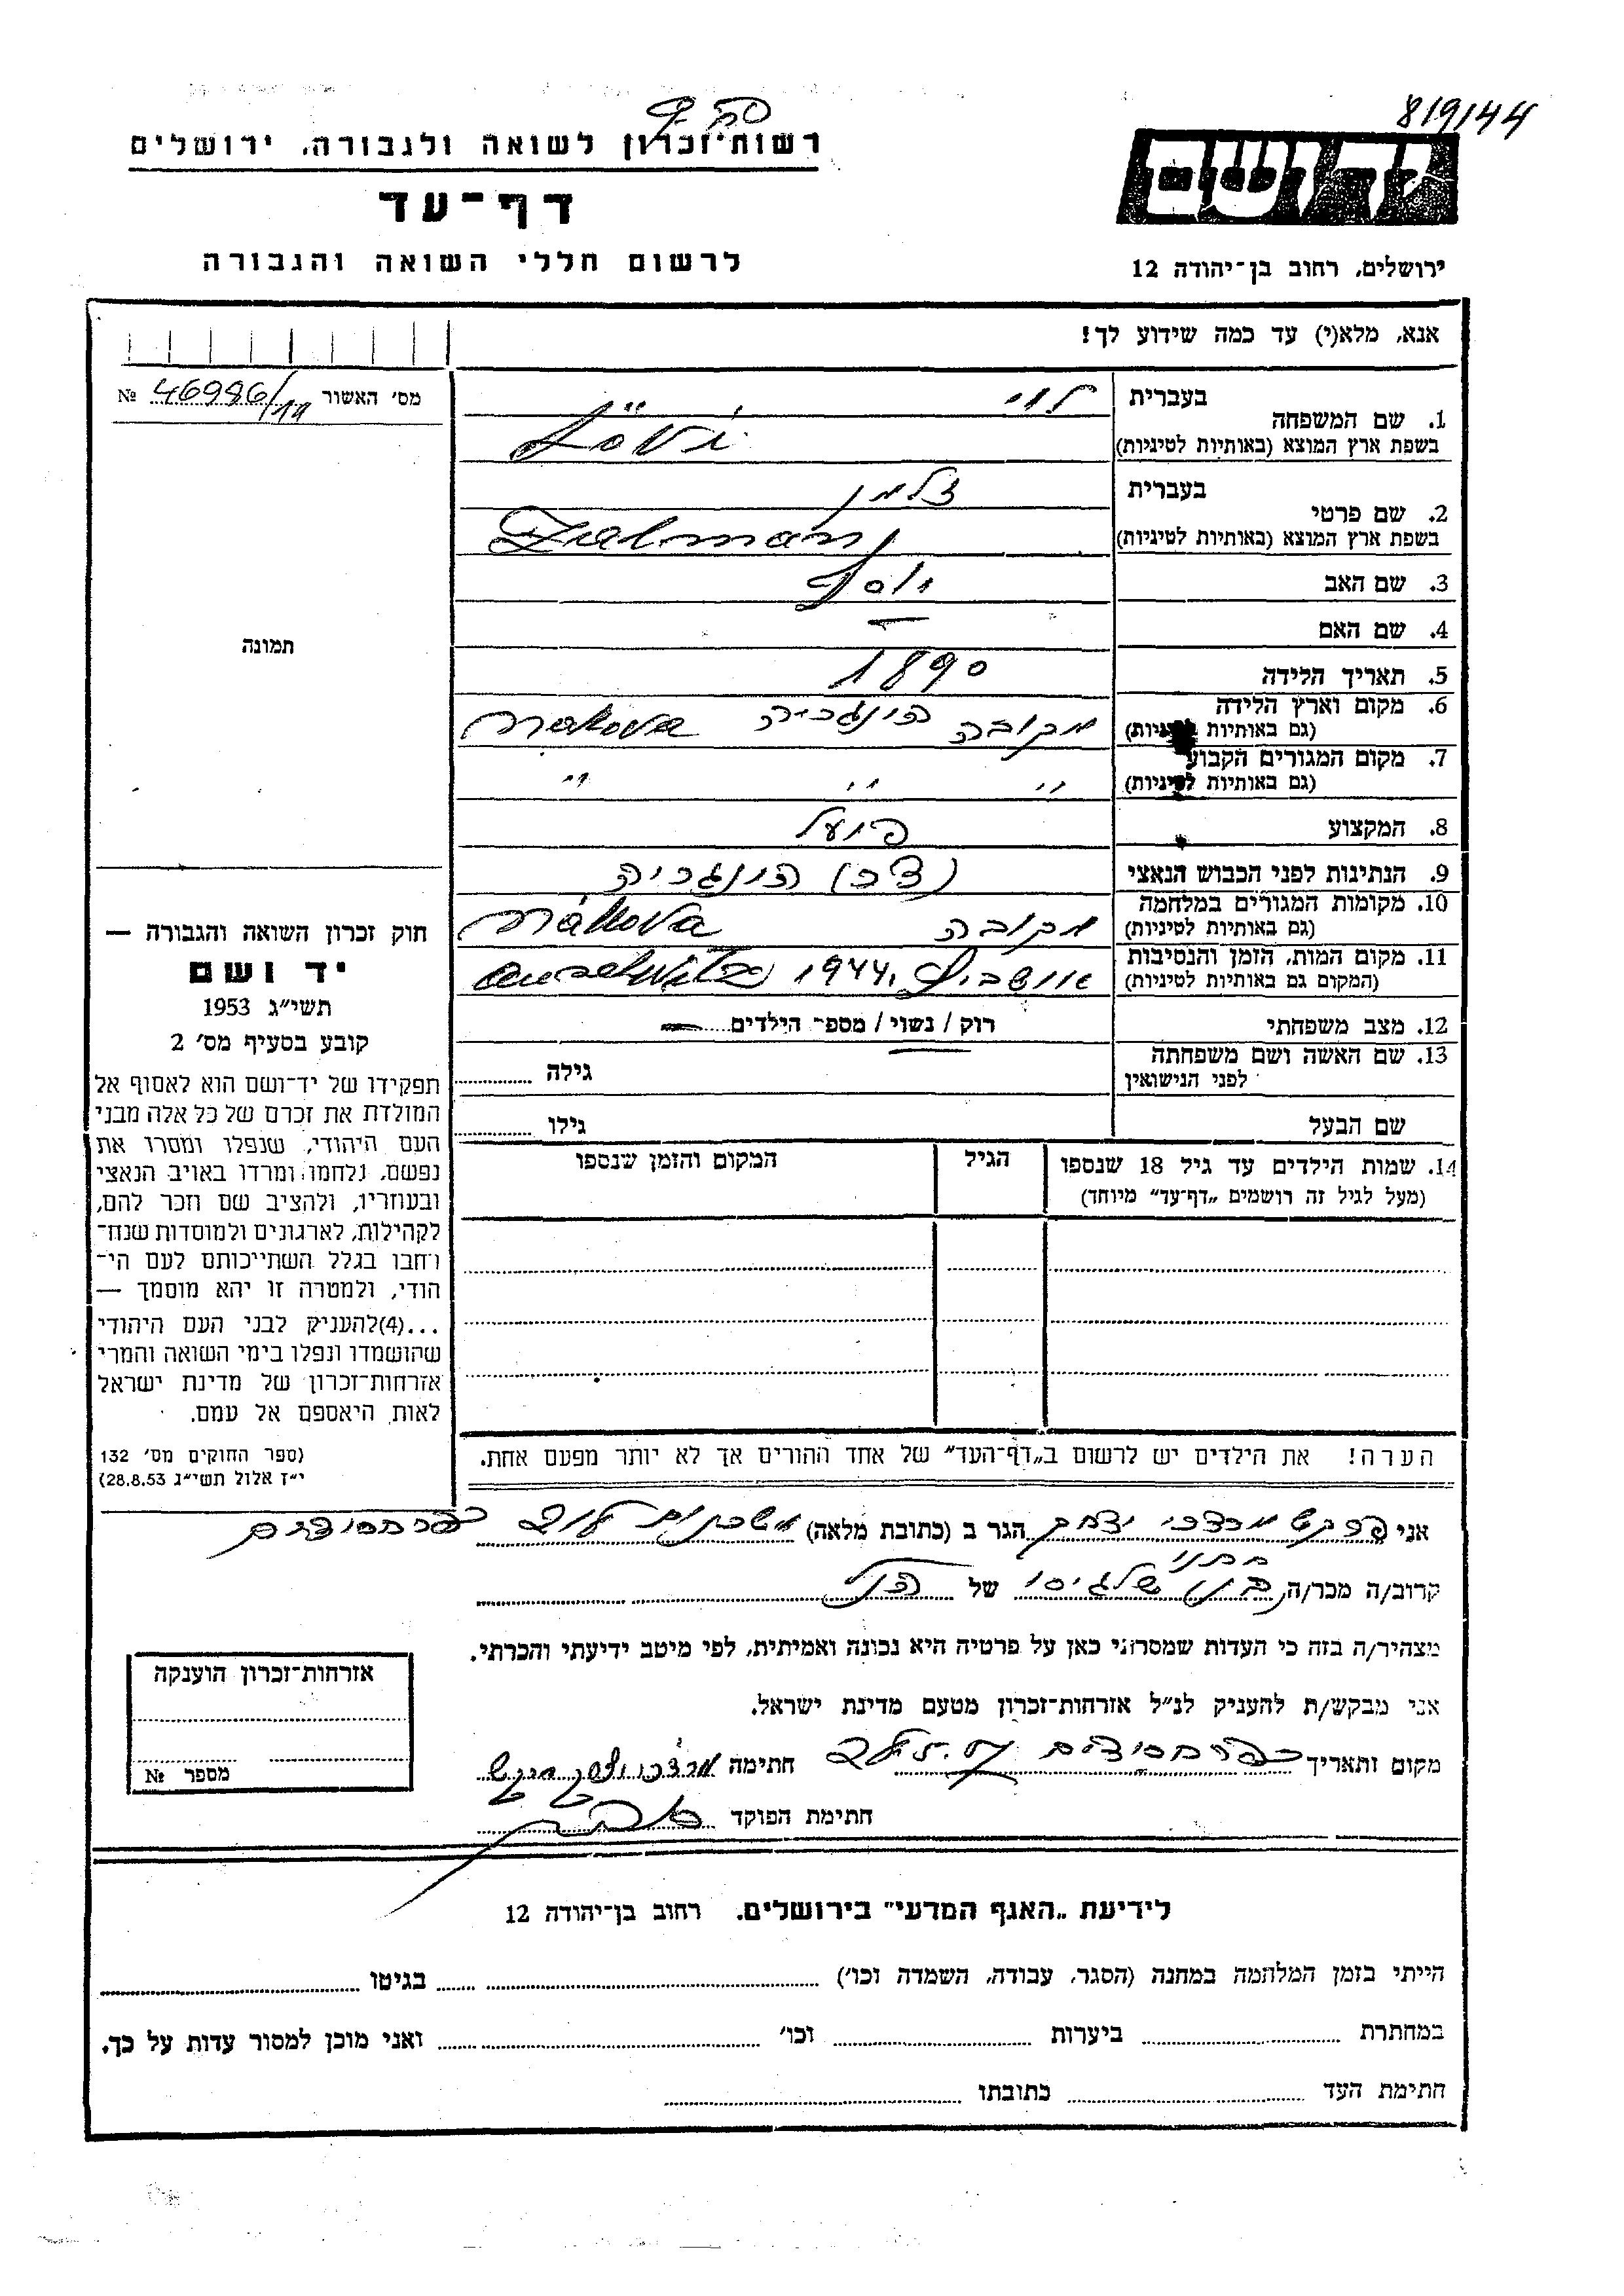 819144
רשות־זכרון לשואה ולגבורה, ירושלים
דף־עד
לרשום חללי השואה והגבורה
יד ושם
ירושלים, רחוב בן־יהודה 12
אנא, מלא(י) עד כמה שידוע לך!
מס׳ האשור 46986/14 №
תמונה
חוק זכרון השואה והגבורה —
יד ושם
תשי״ג 1953
קובע בסעיף מס׳ 2
תפקידו של יד־ושם הוא לאסוף אל
המולדת את זכרם של כל אלה מבני
העם היהודי, שנפלו ומסרו את
נפשם, נלחמו ומרדו באויב הנאצי
ובעוזריו, ולהציב שם וזכר להם,
לקהילות, לארגונים ולמוסדות שנח־
רחבו בגלל השתייכותם לעם הי־
הודי, ולמטרה זו יהא מוסמך —
...(4)להעניק לבני העם היהודי
שהושמדו ונפלו בימי השואה והמרי
אזרחות־זכרון של מדינת ישראל
לאות היאספם אל עמם.
(ספר החוקים מס׳ 132
י״ז אלול תשי״ג 28.8.53)
בעברית לוי
1. שם המשפחה
בשפת ארץ המוצא (באותיות לטיניות) Lövi
בעברית זלמן
2. שם פרטי
בשפת ארץ המוצא (באותיות לטיניות) Zalman
3. שם האב יוסף
4. שם האם —
5. תאריך הלידה 1890
6. מקום וארץ הלידה
(גם באותיות לטיניות) מקובה הונגריה Makova
7. מקום המגורים הקבוע
(גם באותיות לטיניות) " " "
8. המקצוע פועל
9. הנתינות לפני הכבוש הנאצי (צ׳כ) הונגריה
10. מקומות המגורים במלחמה
(גם באותיות לטיניות) מקובה Makova
11. מקום המות, הזמן והנסיבות
(המקום גם באותיות לטיניות) אושביץ 1944, Auschwitz
12. מצב משפחתי רוק / נשוי / מספר הילדים
13. שם האשה ושם משפחתה
לפני הנישואין גילה
שם הבעל גילו
14. שמות הילדים עד גיל 18 שנספו הגיל המקום והזמן שנספו
(מעל לגיל זה רושמים „דף־עד״ מיוחד)
הערה! את הילדים יש לרשום ב„דף־העד״ של אחד ההורים אך לא יותר מפעם אחת.
אני מרדכי יצחק הגר ב (כתובת מלאה) כפר חסידים
קרוב/ה מכר/ה של הנ״ל
מצהיר/ה בזה כי העדות שמסרתי כאן על פרטיה היא נכונה ואמיתית, לפי מיטב ידיעתי והכרתי.
אני מבקש/ת להעניק לנ״ל אזרחות־זכרון מטעם מדינת ישראל.
מקום ותאריך כפר חסידים חתימה
חתימת הפוקד
אזרחות־זכרון הוענקה
מספר №
לידיעת „האגף המדעי״ בירושלים, רחוב בן־יהודה 12
הייתי בזמן המלחמה במחנה (הסגר, עבודה, השמדה וכו׳) בגיטו
במחתרת ביערות וכו׳ ואני מוכן למסור עדות על כך.
חתימת העד כתובתו